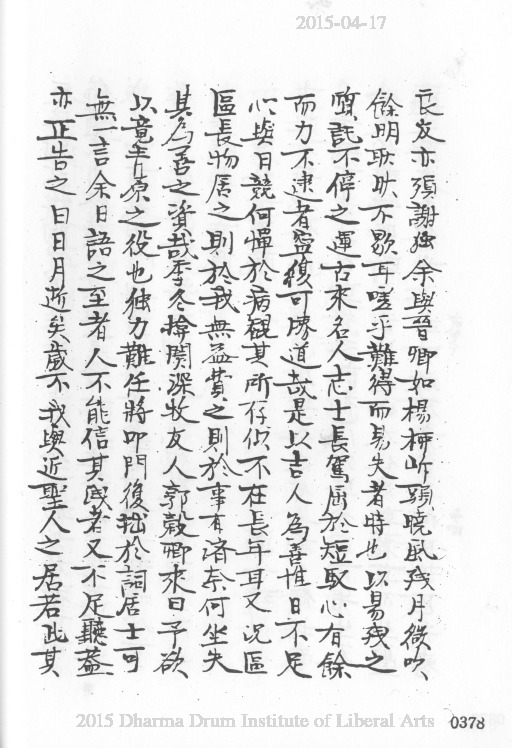 2015-04-17
長友亦須謝独余與晉卿如楊柳岍頭曉風残月後吹
餘明耿耿不歇耳嗟乎難得而易失者時也以易残之
頭託不停之運古來名人志士長駕屈於短馭心有餘
而力不逮者寧復可勝道哉是以吉人為善惟日不足
心與日競何憚於病觀其所存似不在長年耳又況區
區長物居之則於我無益費之則於事有濟奈何坐失
其為善之資哉季冬掉関深牧友人郭穀卿來曰予欲
以竟青原之役也独力難任將叩門復拙於詞居士可
無一言余曰語之至者人不能信其或者又不足聽蓋
亦正告之曰日月逝矣歲不我與近聖人之居若此其
2015 Dharma Drum Institute of Liberal Arts 0378